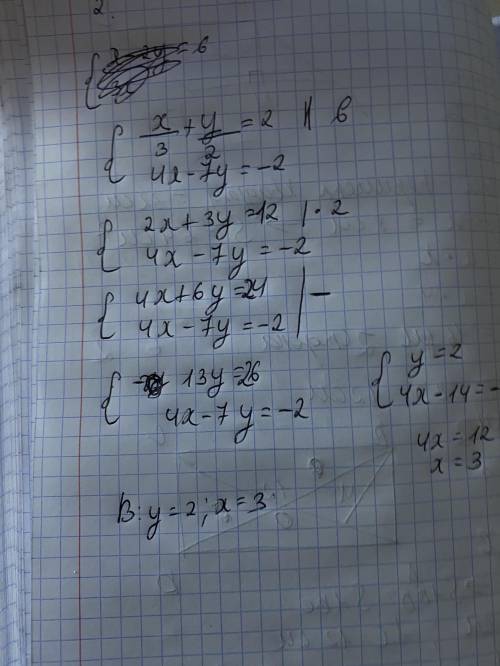 2.
= 6
{ x/3 + y/2 = 2 | · 6
4x - 7y = -2
{ 2x + 3y = 12 | · 2
4x - 7y = -2
{ 4x + 6y = 24 | -
4x - 7y = -2
{ 13y = 26
4x - 7y = -2
{ y = 2
4x - 14 = -
4x = 12
x = 3
В: y = 2; x = 3